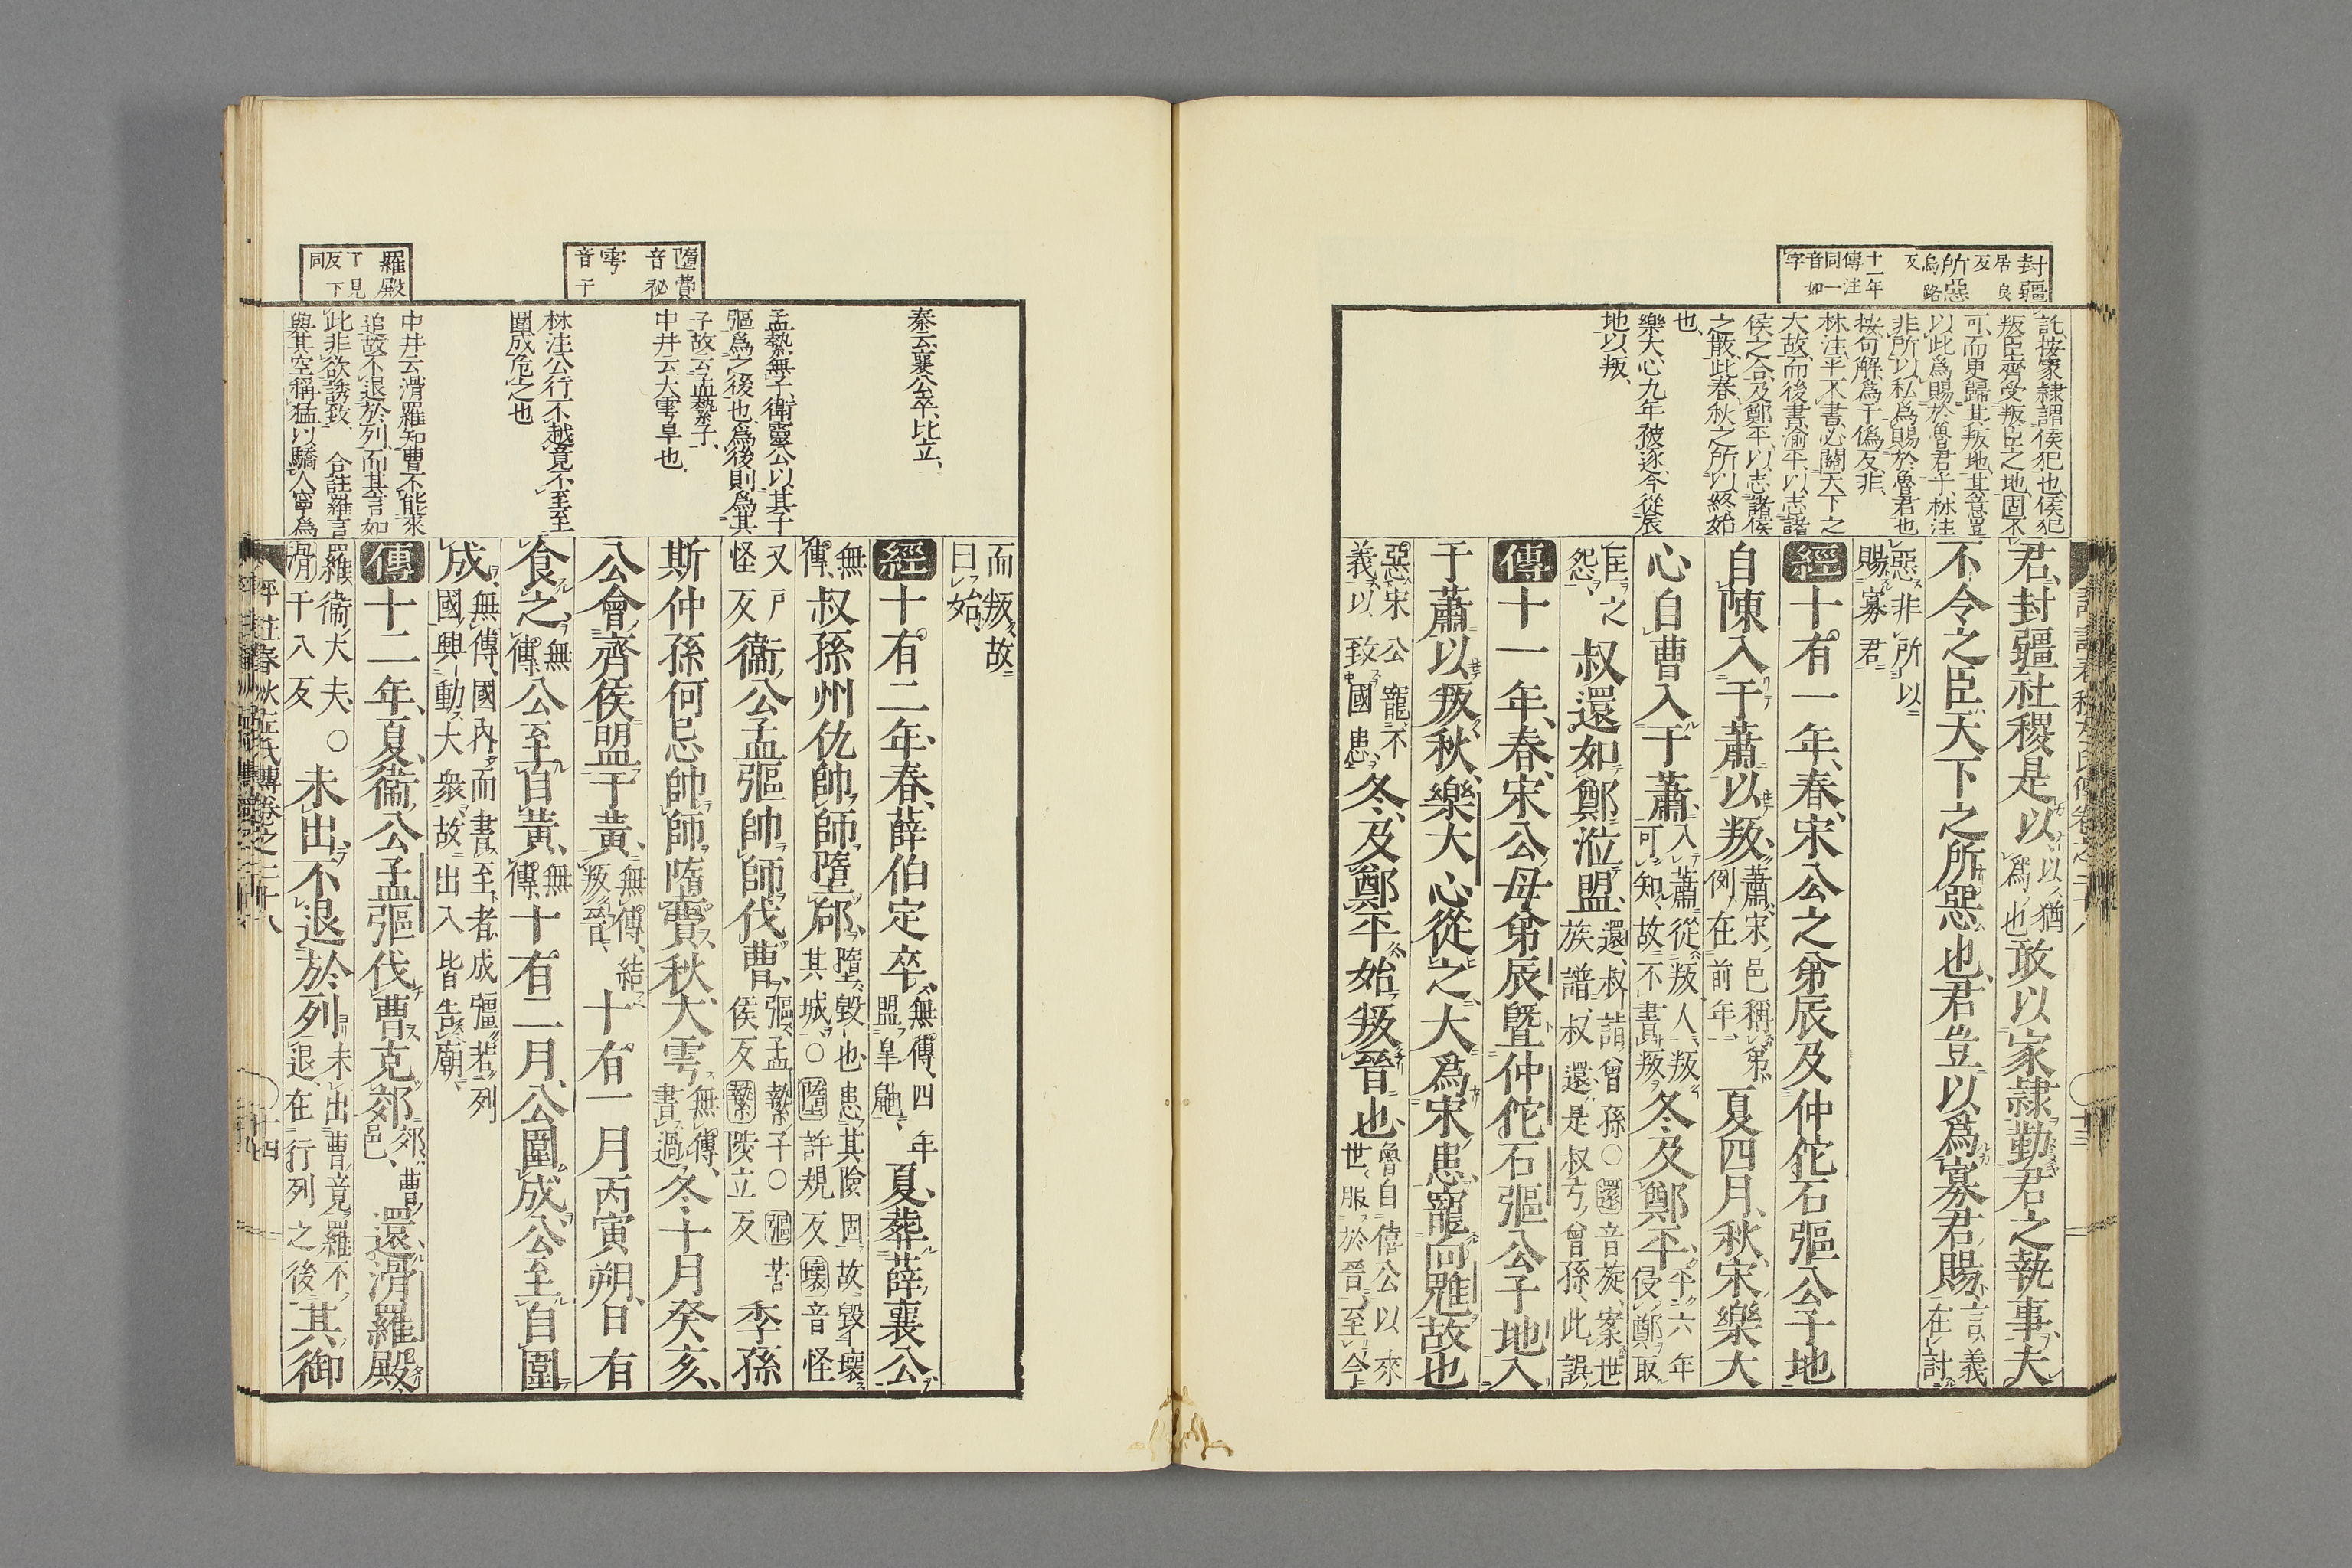 封疆居良反所惡烏路反十一年傳注同一音如字
託按家隸謂侯犯也侯犯
叛臣齊受叛臣之地固不
可而更歸其叛地其意豈
以此爲賜於魯君乎林注
非所以私爲賜於魯君也
按句解爲于僞反非
林注平不書必關天下之
大故而後書渝平以志諸
侯之合及鄭平以志諸侯
之散此春秋之所以終始
也
樂大心九年被逐今從辰
地以叛
君封疆社稷是以以猶爲也敢以家隸勤君之執事夫
不令之臣天下之所惡也君豈以爲寡君賜言義在討
惡非所以賜寡君
經十有一年春宋公之弟辰及仲佗石彄公子地
自陳入于蕭以叛蕭宋邑稱弟例在前年夏四月秋宋樂大
心自曹入于蕭入蕭從叛人叛可知故不書叛冬及鄭平平六年侵鄭取
匡之怨叔還如鄭涖盟還叔詣曾孫○還音旋案世族譜叔還是叔弓曾孫此誤
傳十一年春宋公母弟辰暨仲佗石彄公子地入
于蕭以叛秋樂大心從之大爲宋患寵向魋故也
惡宋公寵不義以致國患冬及鄭平始叛晉也魯自僖公以來世服於晉至今
而叛故曰始
隨費音祕雩音于
羅殿丁見反下同
秦云襄公卒比立
孟縶無子衛靈公以其子
彄爲之後也爲後則爲其
子故云孟縶子
中井云大雩旱也
林注公行不越竟不至至
圍成危之也
中井云滑羅知曹不能來
追故不退於列而其言如
此非欲誘致 合註羅言
與其空稱猛以驕人寧爲
經十有二年春薛伯定卒無傳四年盟皐鼬夏葬薛襄公
無傳叔孫州仇帥師墮郈墮毀也患其險固故毀壞其城○墮許規反壞音怪
又戶怪反衞公孟彄帥師伐曹彄孟縶子○彄苦侯反縶陟立反季孫
斯仲孫何忌帥師墮費秋大雩無傳書過冬十月癸亥
公會齊侯盟于黃無傳結叛晉十有一月丙寅朔日有
食之無傳公至自黃無傳十有二月公圍成公至自圍
成無傳國內而書至者成彊若列國興動大衆故出入皆告廟
傳十二年夏衞公孟彄伐曹克郊郊曹邑還滑羅殿
羅衞大夫○滑于八反未出不退於列未出曹竟羅不退在行列之後其御
評註春秋左氏傳卷之二十八